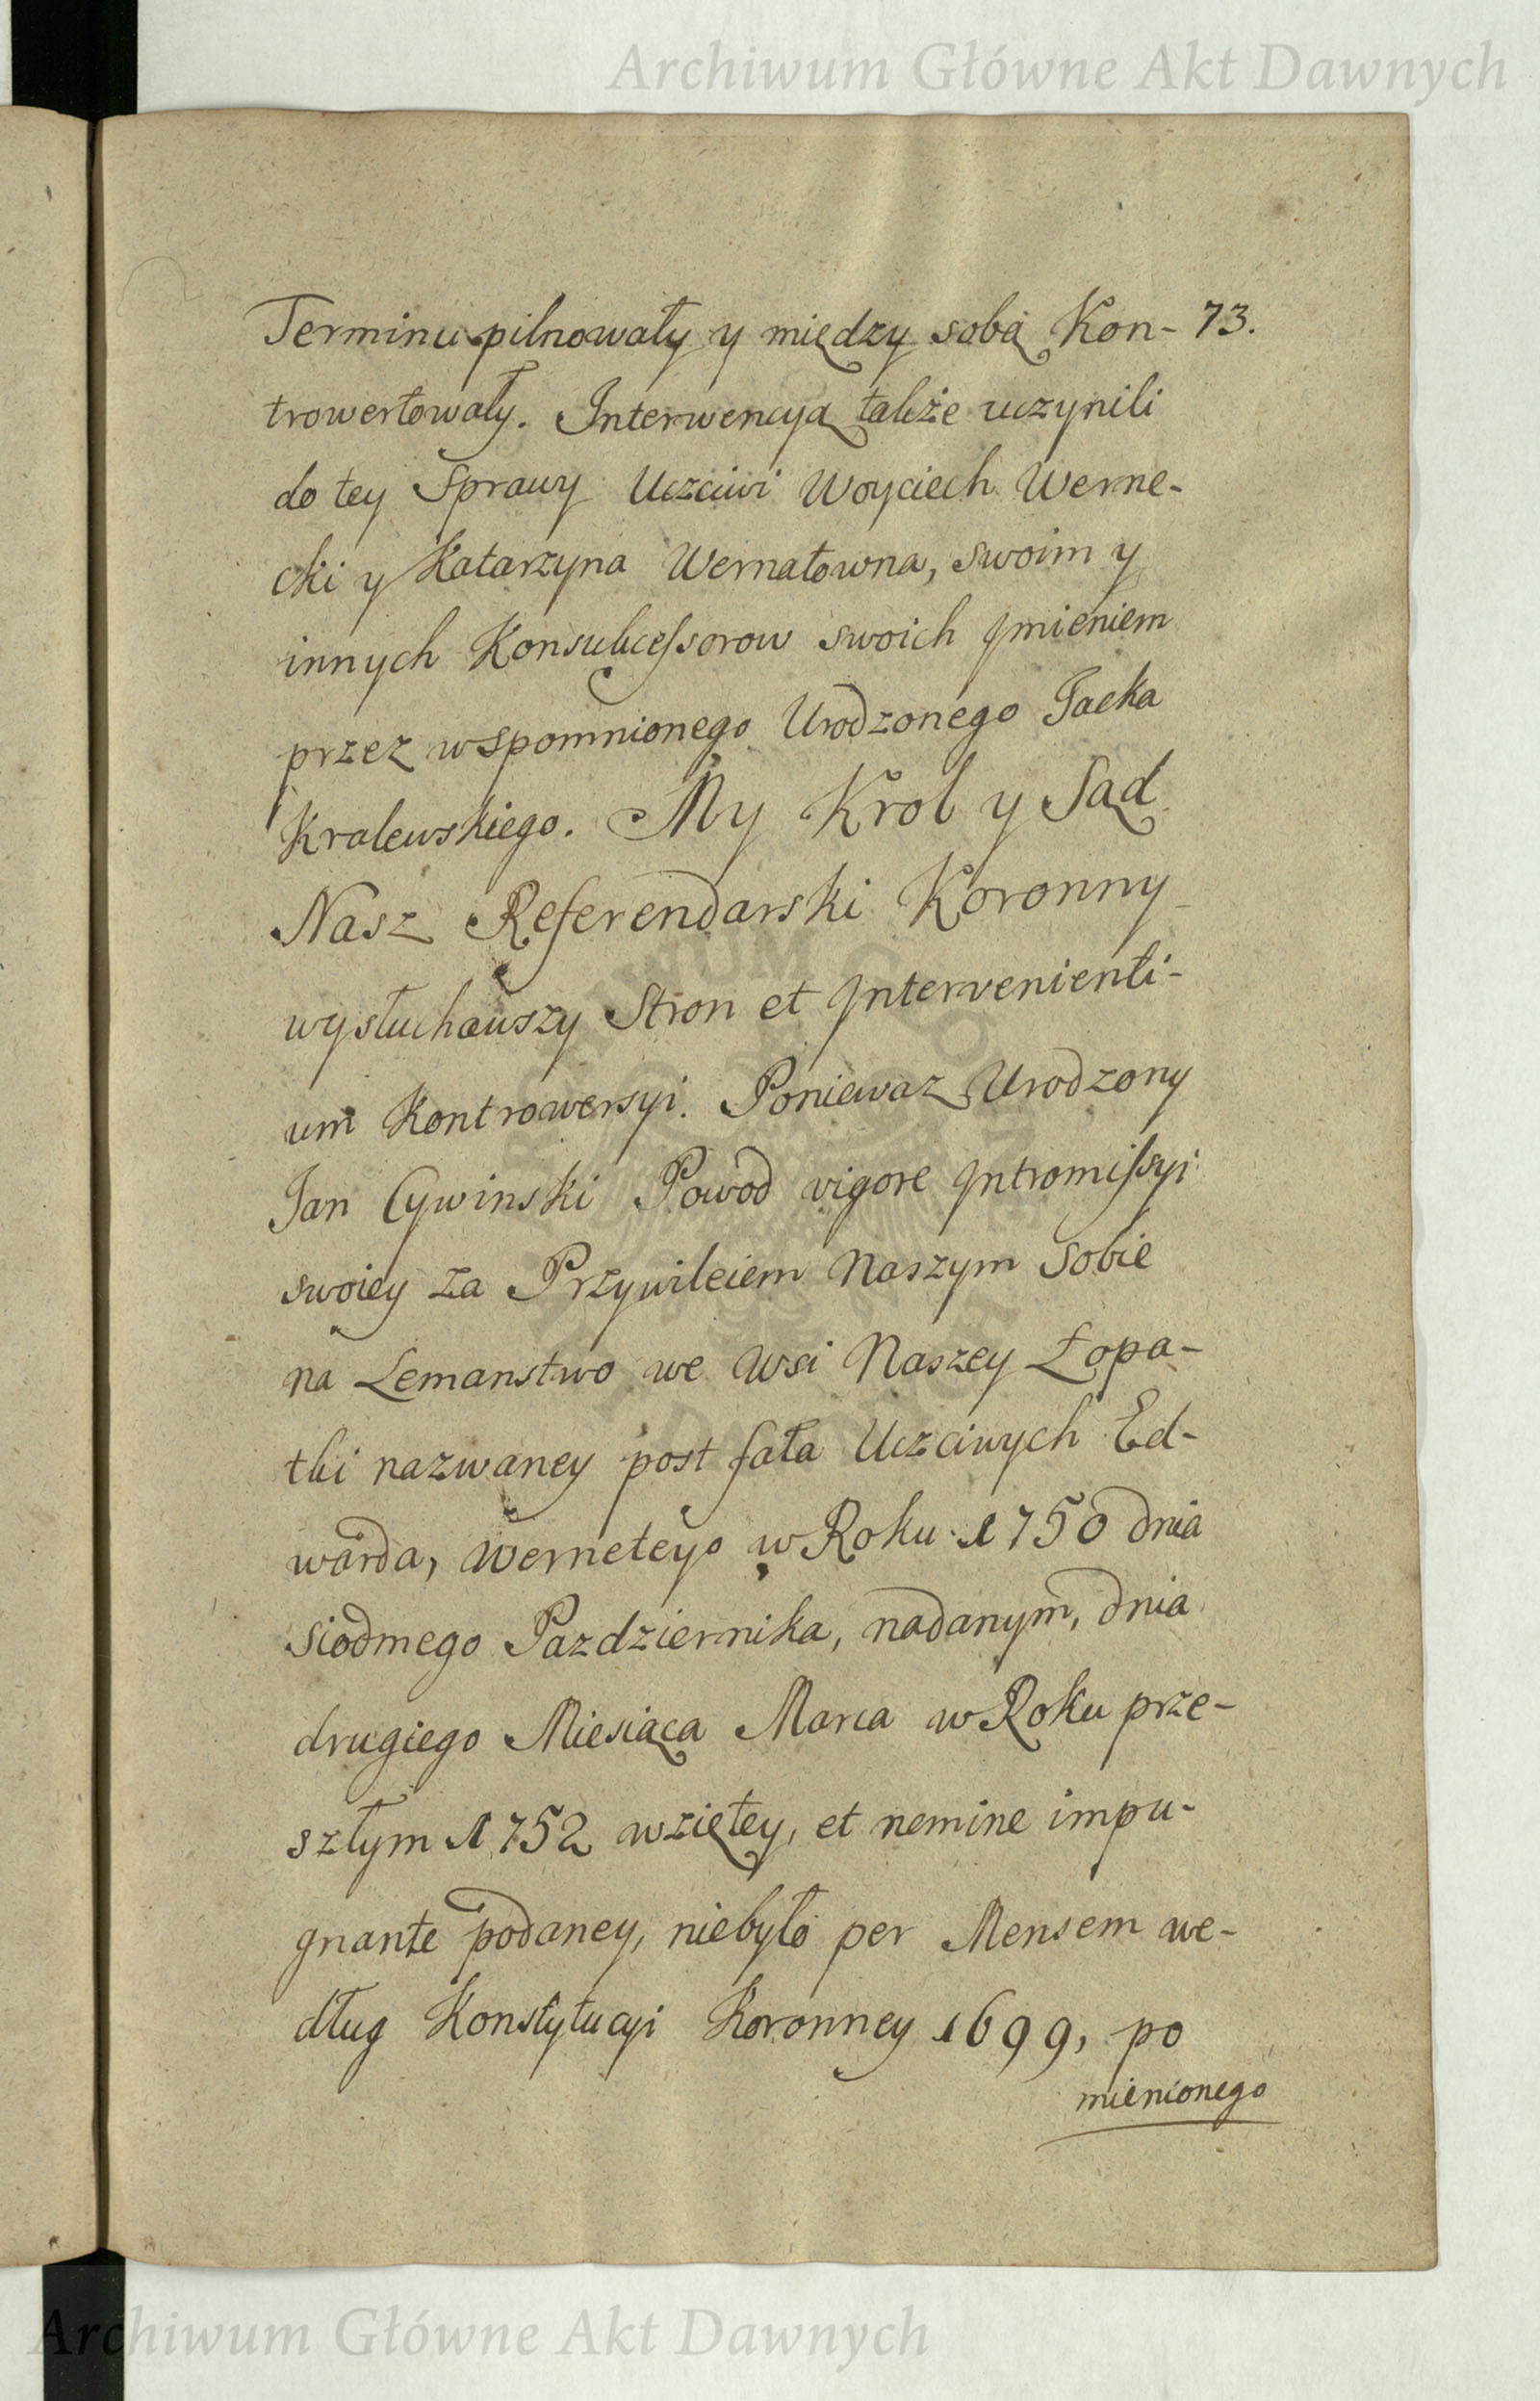 Archiwum Główne Akt Dawnych
Terminu pilnowały y między sobą Kon- 73.
trowertowały. Interwencyą także uczynili
do tey Sprawy Uczciwi Woyciech Werne-
cki y Katarzyna Wernatowna, swoim y
innych Konsukcessorow swoich Jmieniem
przez wspomnionego Urodzonego Jacka
Kralewskiego. My Krol y Sąd
Nasz Referendarski Koronny
wysłuchawszy Stron et Jntervenienti-
um Kontrowersyi. Poniewaz Urodzony
Jan Cywinski Powod vigore Jntromissyi
swoiey za Przywileiem Naszym Sobie
na Lemanstwo we Wsi Naszey Łopa-
tki nazwaney post fata Uczciwych Ed-
warda, Wernetego w Roku 1750 dnia
Siodmego Pazdziernika, nadanym, dnia
drugiego Miesiąca Marca w Roku prze-
szłym 1752 wziętey, et nemine impu-
gnante podaney, niebyło per Mensem we-
dług Konstytucyi Koronney 1699, po
mienionego
Archiwum Główne Akt Dawnych